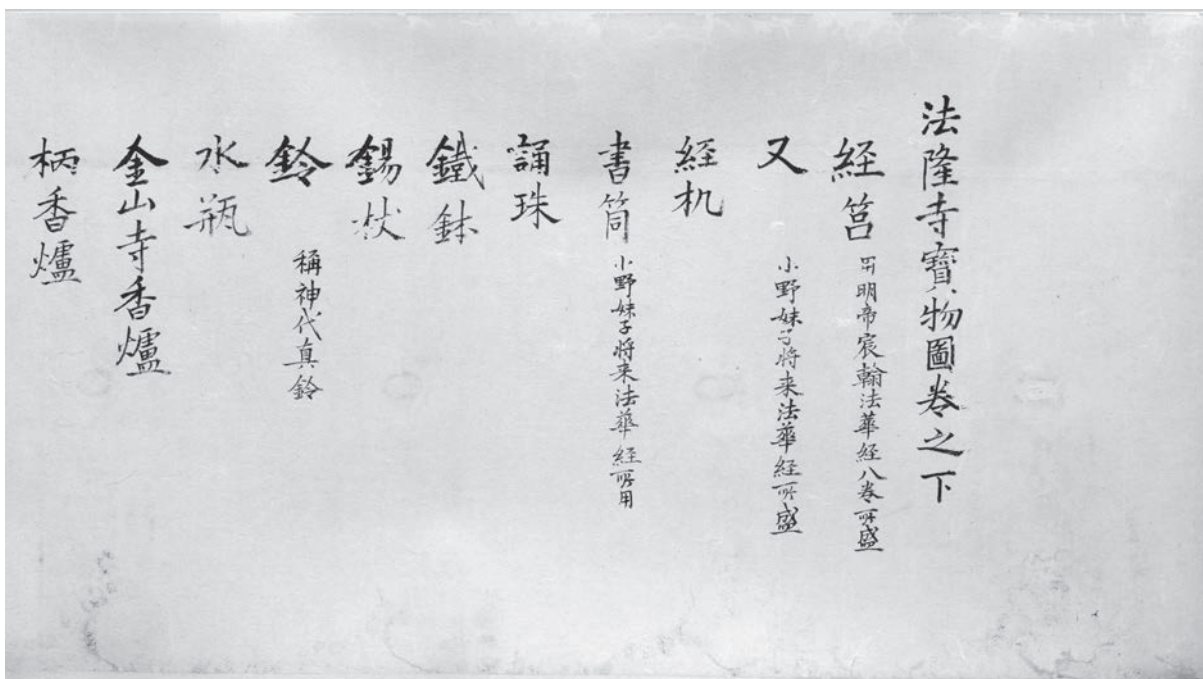 法隆寺寶物圖卷之下
経筥 用明帝宸翰法華経八巻所盛
又 小野妹子将来法華経所盛
経机
書筒 小野妹子将来法華経所用
誦珠
鐵鉢
錫杖
鈴 稱神代真鈴
水瓶
金山寺香爐
柄香爐